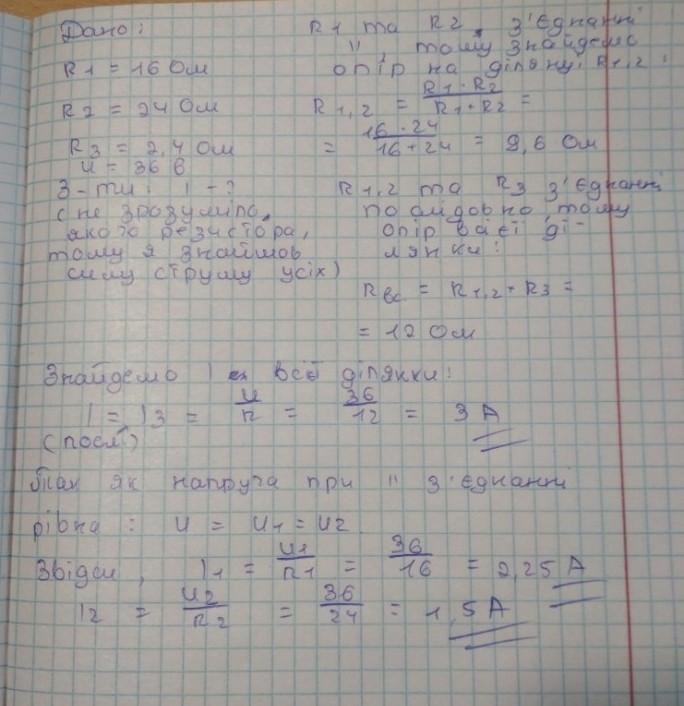 Дано:
R1 = 16 Ом
R2 = 24 Ом
R3 = 2,4 Ом
U = 36 В
З-ти: I - ?
(не зрозуміло,
якого резистора,
тому я знайшов
силу струму усіх)
R1 та R2 з'єднанні
", тому знайдемо
опір на ділянці R1,2:
R1,2 = R1 · R2 / R1 + R2 =
= 16 · 24 / 16 + 24 = 9,6 Ом
R1,2 та R3 з'єднанні
послідовно, тому
опір всієї ді-
лянки:
Rвс = R1,2 + R3 =
= 12 Ом
Знайдемо I всієї ділянки:
I = I3 = U / R = 36 / 12 = 3 А
(посл)
Так як напруга при " з'єднанні
рівна: U = U1 = U2
Звідси, I1 = U1 / R1 = 36 / 16 = 2,25 А
I2 = U2 / R2 = 36 / 24 = 1,5 А